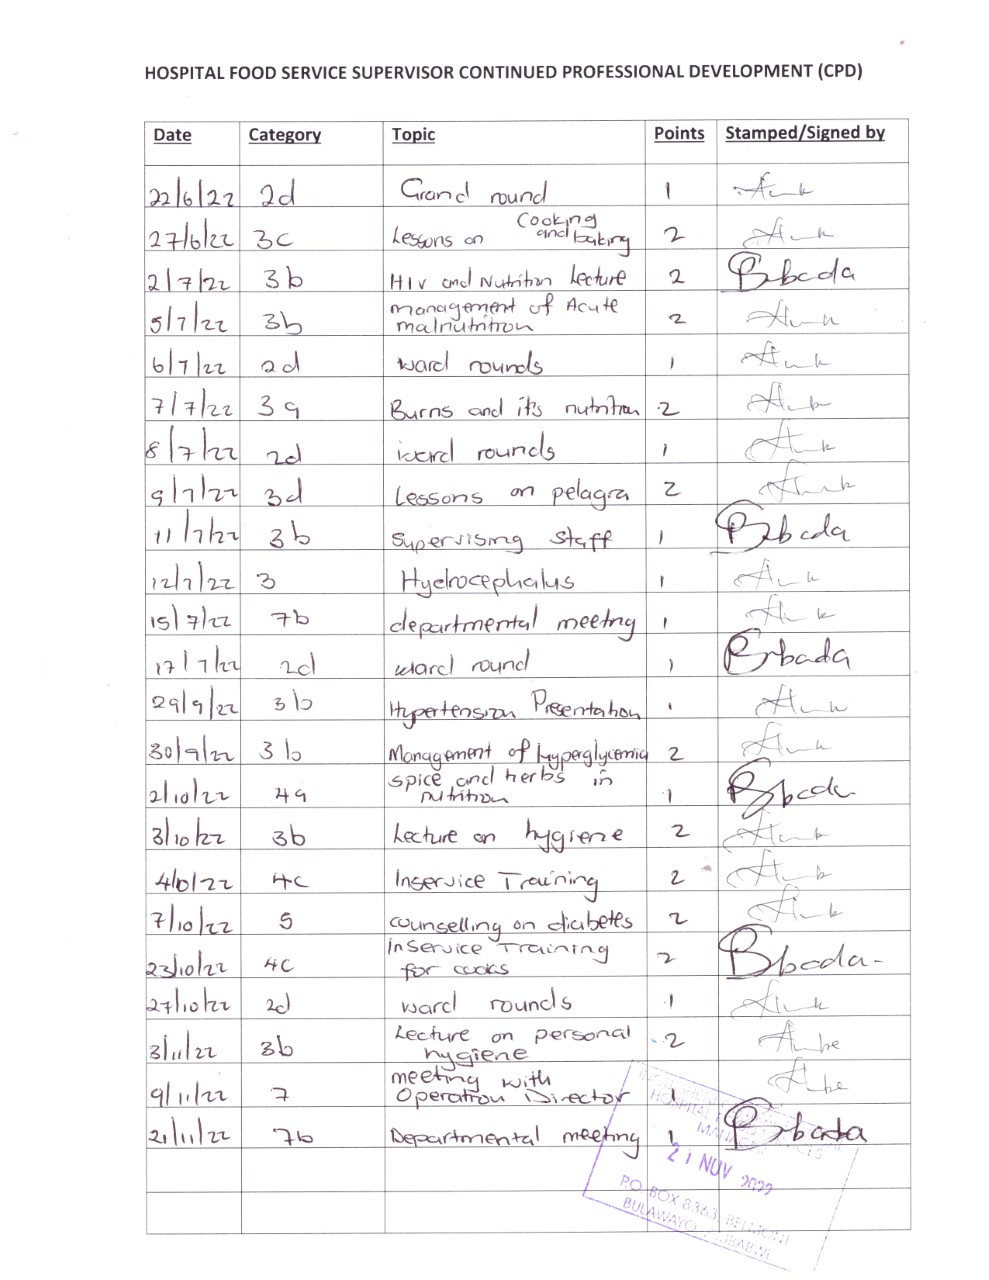 HOSPITAL FOOD SERVICE SUPERVISOR CONTINUED PROFESSIONAL DEVELOPMENT (CPD)
Date Category Topic Points Stamped/Signed by
22/6/22 2d Grand round 1
27/6/22 3c Lessons on Cooking and baking 2
2/7/22 3b HIV and Nutrition Lecture 2 Bbada
5/7/22 3b management of Acute malnutrition 2
6/7/22 2d ward rounds 1
7/7/22 3a Burns and its nutrition 2
8/7/22 2d ward rounds 1
9/7/22 3d Lessons on pelagra 2
11/7/22 3b Supervising Staff 1 Bbada
12/7/22 3 Hydrocephalus 1
15/7/22 7b departmental meeting 1
17/7/22 2d ward round 1 Bbada
29/9/22 3b Hypertension Presentation 1
30/9/22 3b Management of hyperglycemia 2
2/10/22 4a spice and herbs in nutrition 1 Bbada
3/10/22 3b Lecture on hygiene 2
4/10/22 4c Inservice Training 2
7/10/22 5 counselling on diabetes 2
23/10/22 4c inservice Training for cooks 2 Bbada
27/10/22 2d ward rounds 1
3/11/22 3b Lecture on personal hygiene 2
9/11/22 7 meeting with Operation Director 1
21/11/22 7b Departmental meeting 1 Bbada
HOSPITAL
21 NOV 2022
P.O. BOX 8363, BELMONT
BULAWAYO ZIMBABWE